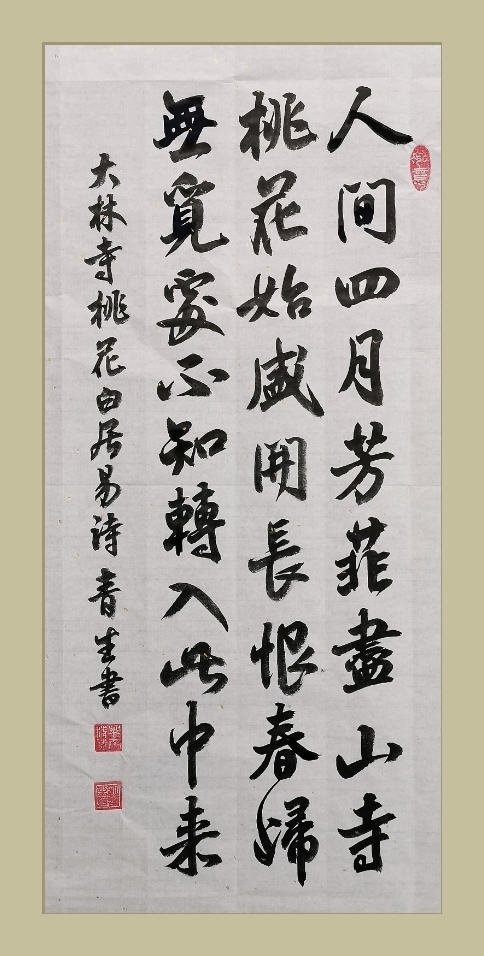 人間四月芳菲盡山寺
桃花始盛開長恨春歸
無覓處不知轉入此中来
大林寺桃花白居易诗 青生書